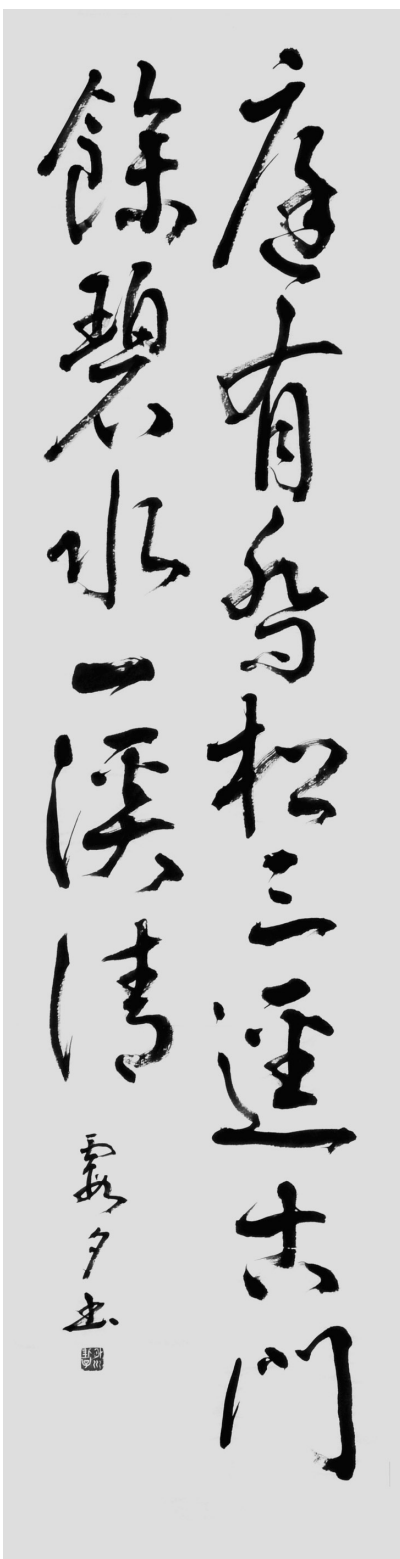 庭有喬松三逕古門
餘碧水一溪清
霞夕書